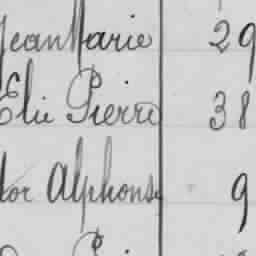 Jean Marie 29
Elie Pierre 38
tor Alphons 9